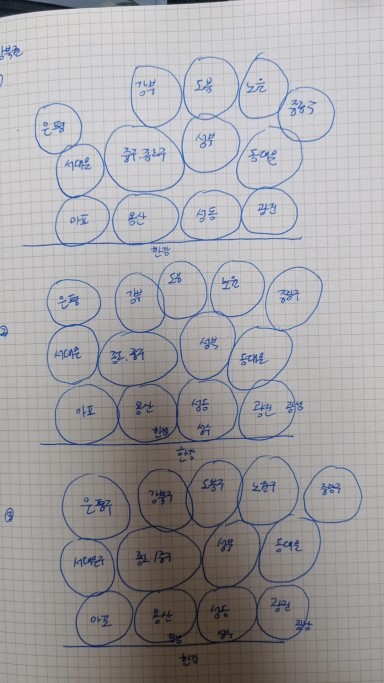 강북권
강북 도봉 노원 중랑구
은평
서대문 중구.종로구 성북 동대문
마포 용산 성동 광진
한강
②
은평 강북 도봉 노원 중랑구
서대문 종로.중구 성북 동대문
마포 용산 성동 광진 광남
한남 성수
한강
③
은평구 강북구 도봉구 노원구 중랑구
서대문구 종로/중구 성북 동대문
마포 용산 성동 광진
성수 광남
한강